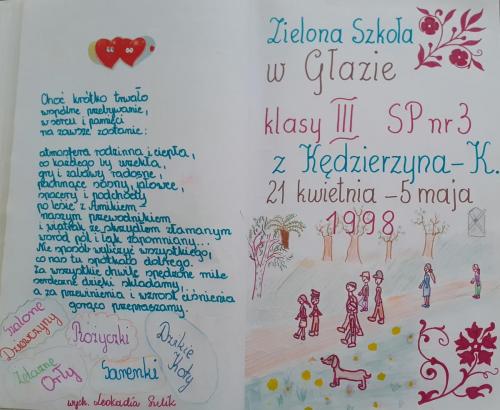 Choć krótko trwało
wspólne przebywanie,
w sercu i pamięci
na zawsze zostanie:
atmosfera rodzinna i ciepła,
co każdego by urzekła,
gry i zabawy radosne,
pachnące sosny, jałowce,
spacery i podchody
po lesie z Amikiem
naszym przewodnikiem
i wiatrak ze skrzydłem złamanym
wśród pól i łąk zapomniany...
Nie sposób wyliczyć wszystkiego,
co nas tu spotkało dobrego.
Za wszystkie chwile spędzone mile
serdeczne dzięki składamy,
a za przewinienia i wzrost ciśnienia
gorąco przepraszamy.
Szalone
Dziewczyny
Różyczki
Dzikie
Koty
Żelazne
Orły
Sarenki
wych. Leokadia Sulik
Zielona Szkoła
w Głazie
klasy III SP nr 3
z Kędzierzyna-K.
21 kwietnia - 5 maja
1998